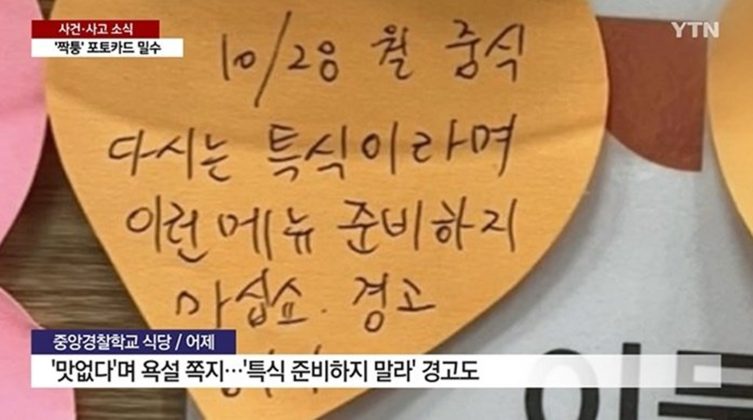 사건·사고 소식
'짝퉁' 포토카드 밀수
YTN
10/28 월 중식
다시는 특식이라며
이런메뉴 준비하지
마십쇼. 경고
중앙경찰학교 식당 / 어제
'맛없다'며 욕설 쪽지…'특식 준비하지 말라' 경고도